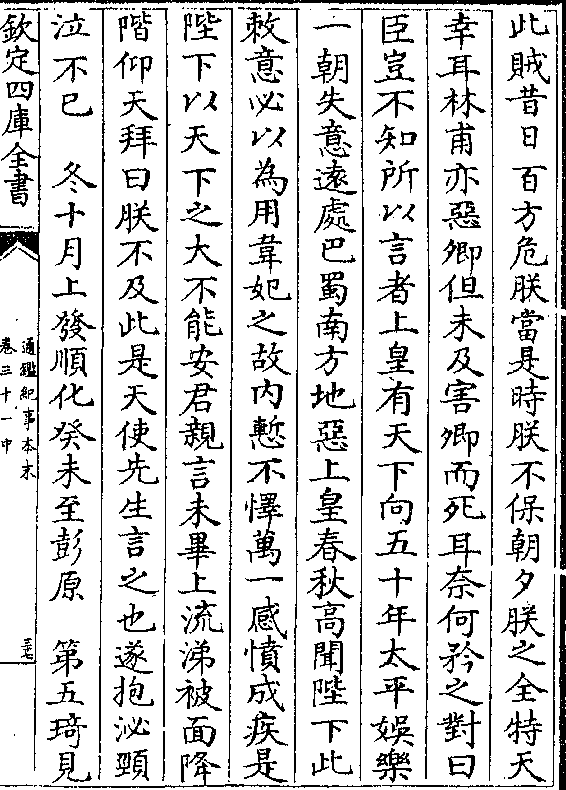 此賊昔日百方危朕當是時朕不保朝夕朕之全特天
幸耳林甫亦惡卿但未及害卿而死耳奈何矜之對曰
臣豈不知所以言者上皇有天下向五十年太平娛樂
一朝失意遠處巴蜀南方地惡上皇春秋高聞陛下此
敕意必以為用韋妃之故内慙不懌萬一感憤成疾是
陛下以天下之大不能安君親言未畢上流涕被面降
階仰天拜曰朕不及此是天使先生言之也遂抱泌頸
泣不已　冬十月上發順化癸未至彭原　第五琦見
欽定四庫全書
通鑑紀事本末
卷三十一中
三七